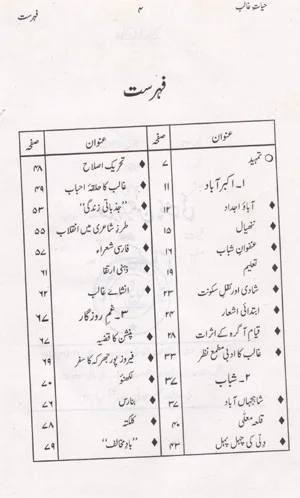 حیاتِ غالب ۴ فہرست
فہرست
عنوان صفحہ
تمہید ۷
۱- اکبر آباد ۱۱
آباؤ اجداد ۱۲
ننھیال ۱۵
عنفوانِ شباب ۱۶
تعلیم ۱۹
شادی اور نقلِ سکونت ۲۳
ابتدائی اشعار ۲۴
قیامِ آگرہ کے اثرات ۲۸
غالب کا ادبی مطمحِ نظر ۳۳
۲- شباب ۳۷
شاہجہاں آباد ۳۷
قلعہ معلّٰی ۴۰
دِلّی کی چہل پہل ۴۳
عنوان صفحہ
تحریکِ اصلاح ۴۸
غالب کا حلقۂ احباب ۴۹
”جذباتی زندگی“ ۵۳
طرزِ شاعری میں انقلاب ۵۵
فارسی شعراء ۵۷
ذہنی ارتقا ۶۱
انشائے غالب ۶۲
۳- غمِ روزگار ۶۷
پنشن کا قضیہ ۶۷
فیروز پور جھرکہ کا سفر ۶۹
لکھنؤ ۷۰
بنارس ۷۶
کلکتہ ۷۸
”بادِ مخالف“ ۷۹